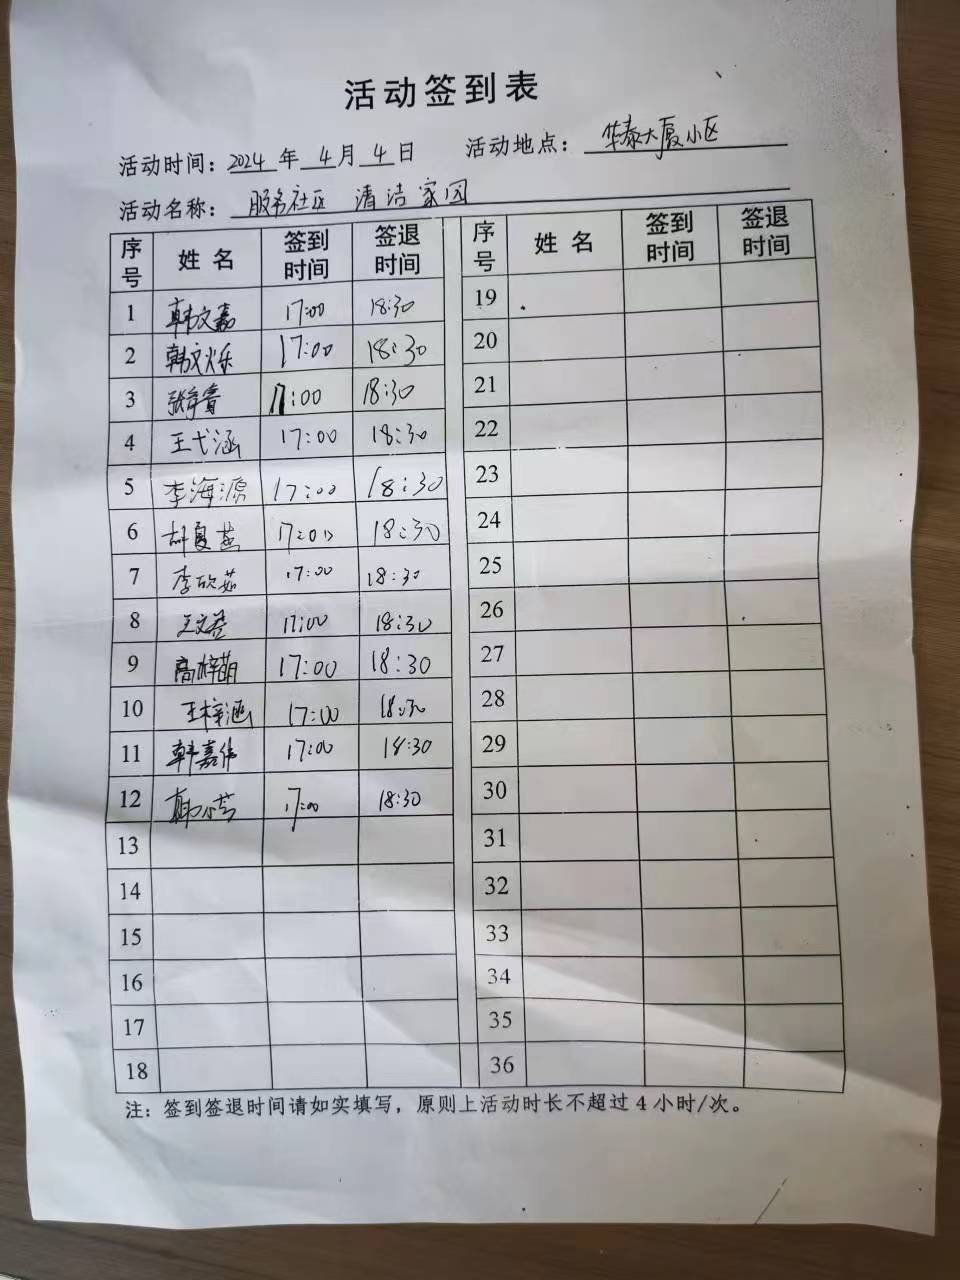 活动签到表
活动时间：2024 年 4 月 4 日 活动地点：华泰大厦小区
活动名称：服务社区 清洁家园
序号 姓名 签到时间 签退时间 序号 姓名 签到时间 签退时间
1 韩文嘉 17:00 18:30 19
2 韩文烁 17:00 18:30 20
3 17:00 18:30 21
4 王弋涵 17:00 18:30 22
5 李海源 17:00 18:30 23
6 胡夏燕 17:00 18:30 24
7 李欣茹 17:00 18:30 25
8 17:00 18:30 26
9 高梓萌 17:00 18:30 27
10 王梓涵 17:00 18:30 28
11 韩嘉伟 17:00 18:30 29
12 17:00 18:30 30
13 31
14 32
15 33
16 34
17 35
18 36
注：签到签退时间请如实填写，原则上活动时长不超过 4 小时/次。